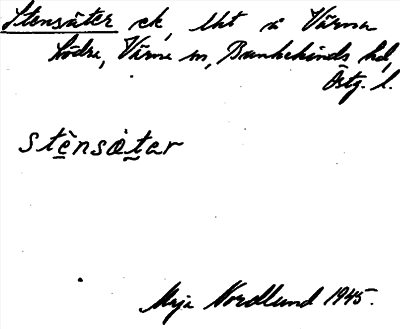 Stensäter ek, lht å Värna
Södra, Värna sn, Bankekinds hd,
Östg. l.
stènsä̀tar
Maja Nordlund 1945.